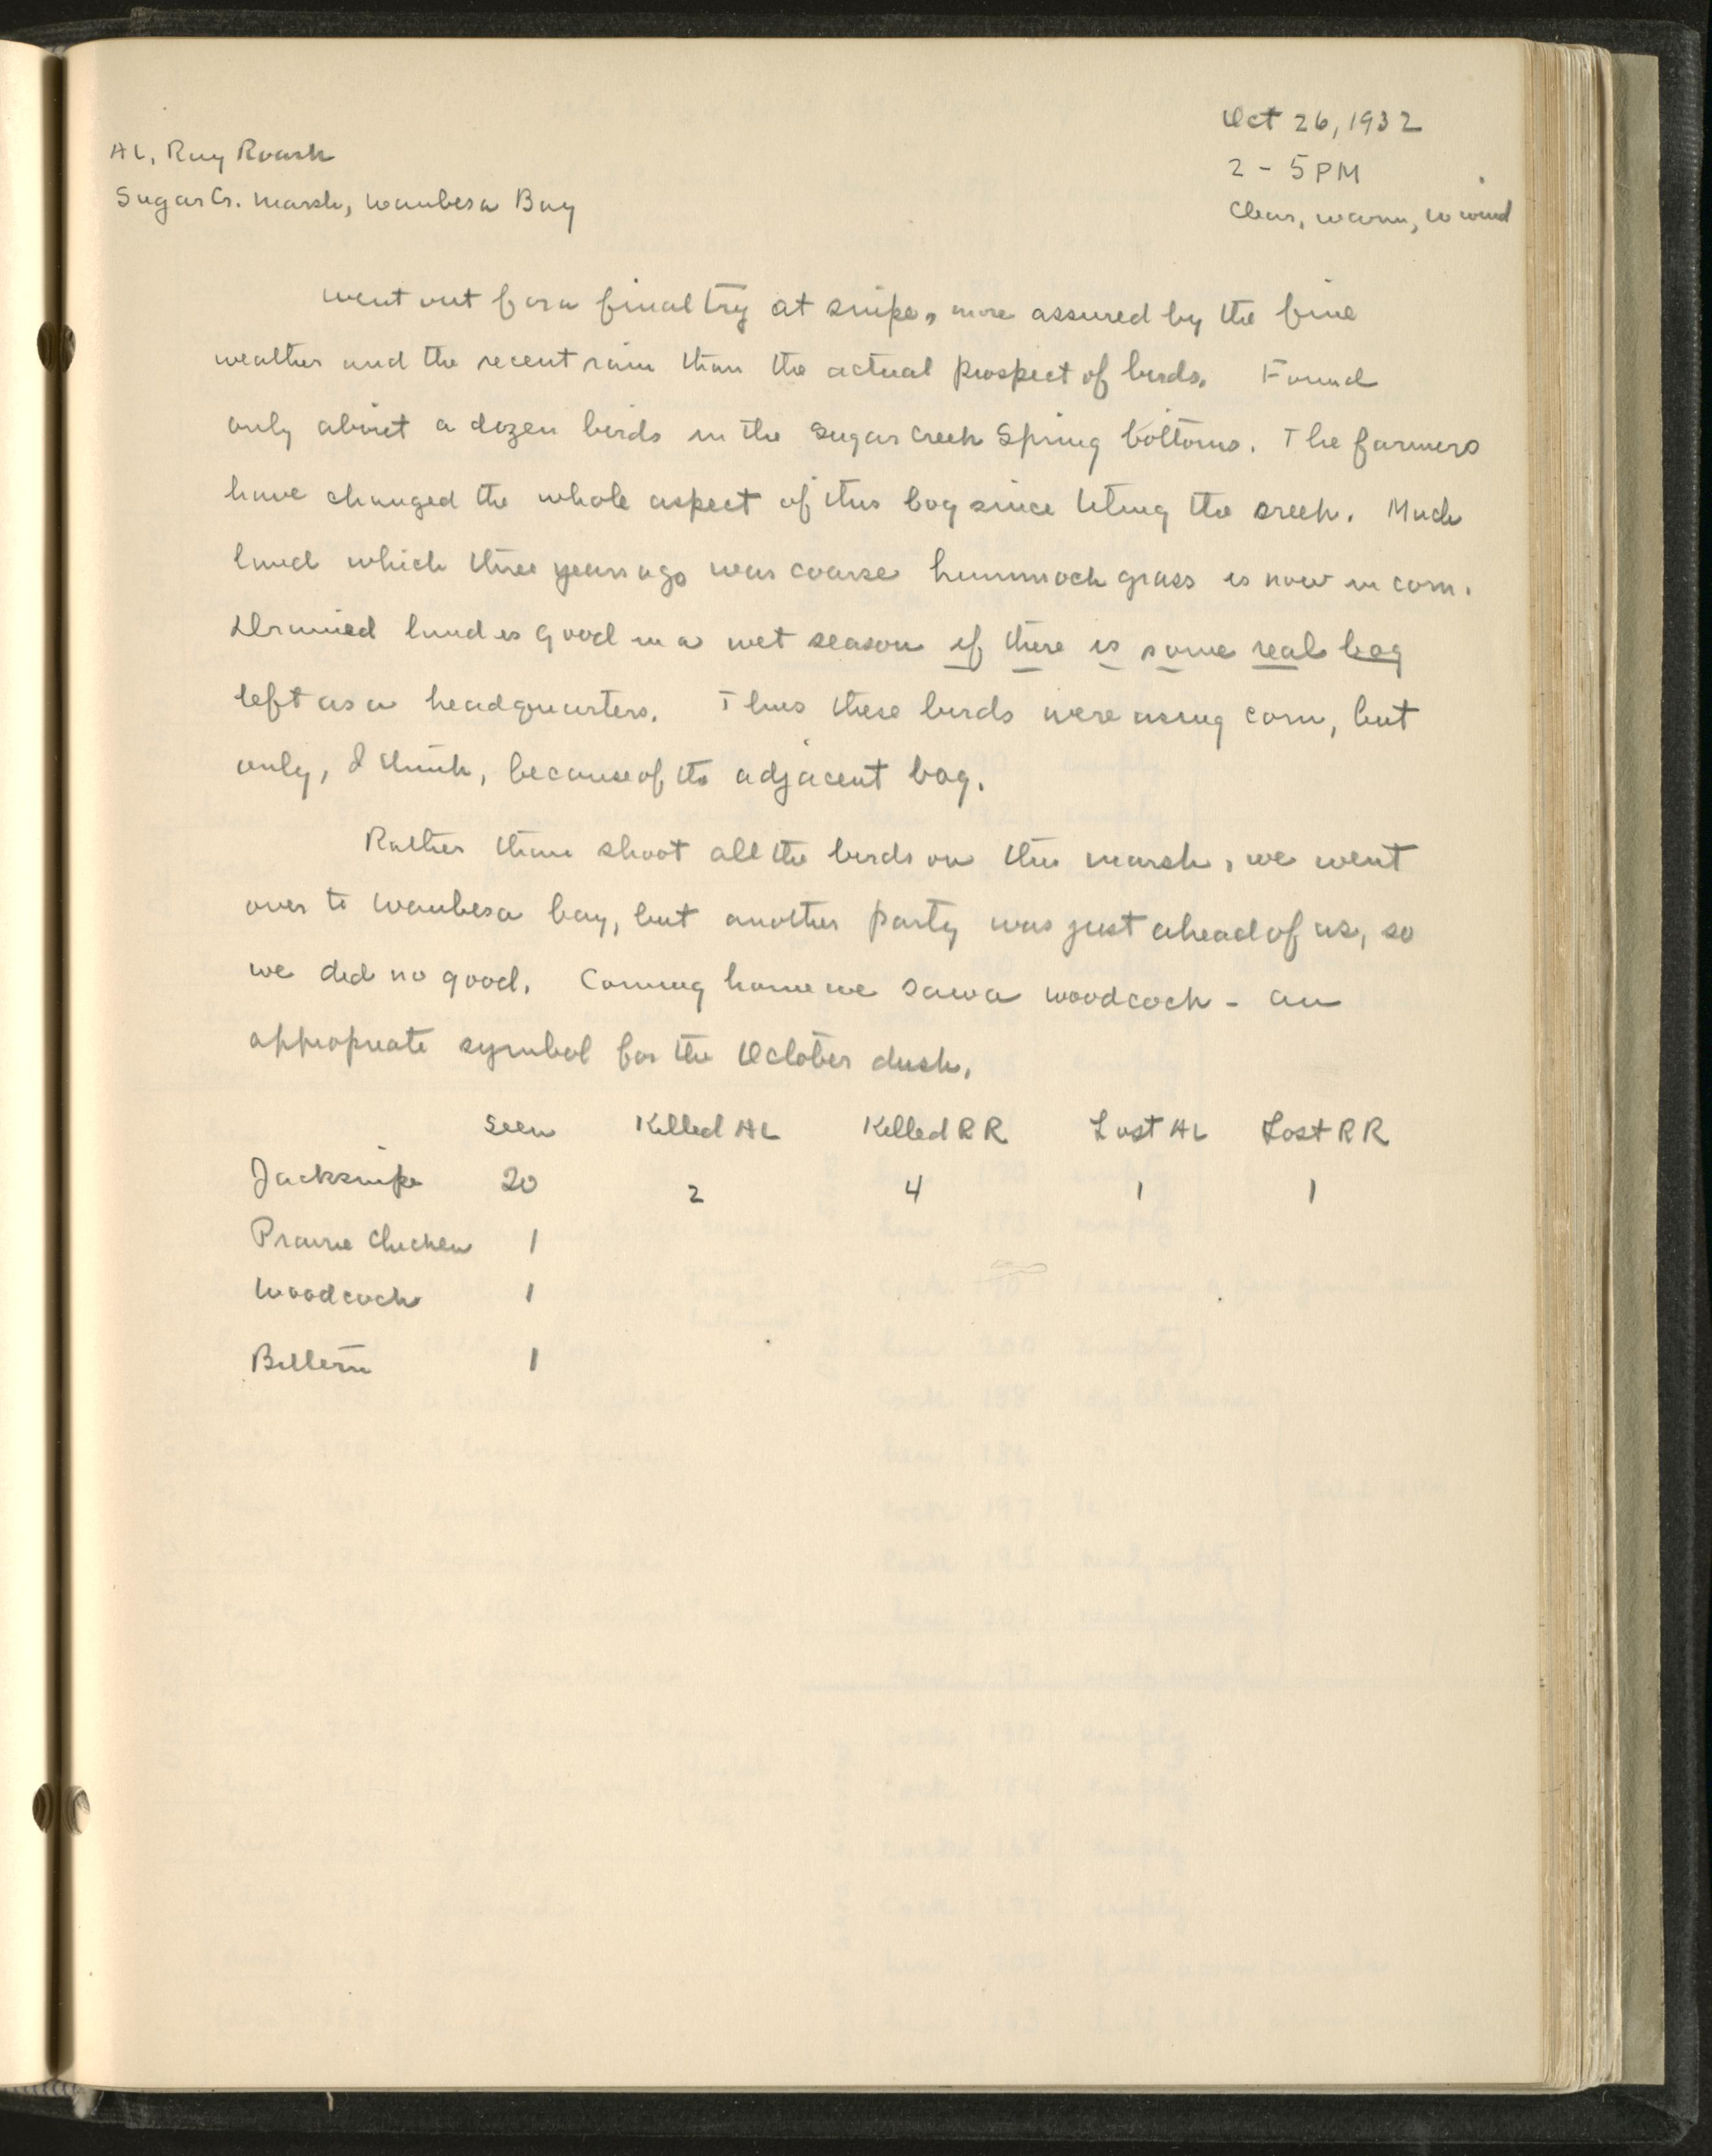 Oct 26, 1932
AL, Ray Roark
2 - 5 PM
Sugar Cr. Marsh, Waubesa Bay
Clear, warm, W wind
Went out for a final try at snipe, more assured by the fine
weather and the recent rain than the actual prospect of birds. Found
only about a dozen birds in the Sugar Creek Spring bottoms. The farmers
have changed the whole aspect of this bog since tiling the creek. Much
land which three years ago was coarse hummock grass is now in corn.
Drained land is good in a wet season if there is some real bog
left as a headquarters. Thus these birds were using corn, but
only, I think, because of the adjacent bog.
Rather than shoot all the birds on this marsh, we went
over to Waubesa bay, but another party was just ahead of us, so
we did no good. Coming home we saw a woodcock - an
appropriate symbol for the October dusk.
Seen Killed AL Killed RR Lost AL Lost RR
Jacksnipe 20 2 4 1 1
Prairie Chicken 1
Woodcock 1
Bittern 1